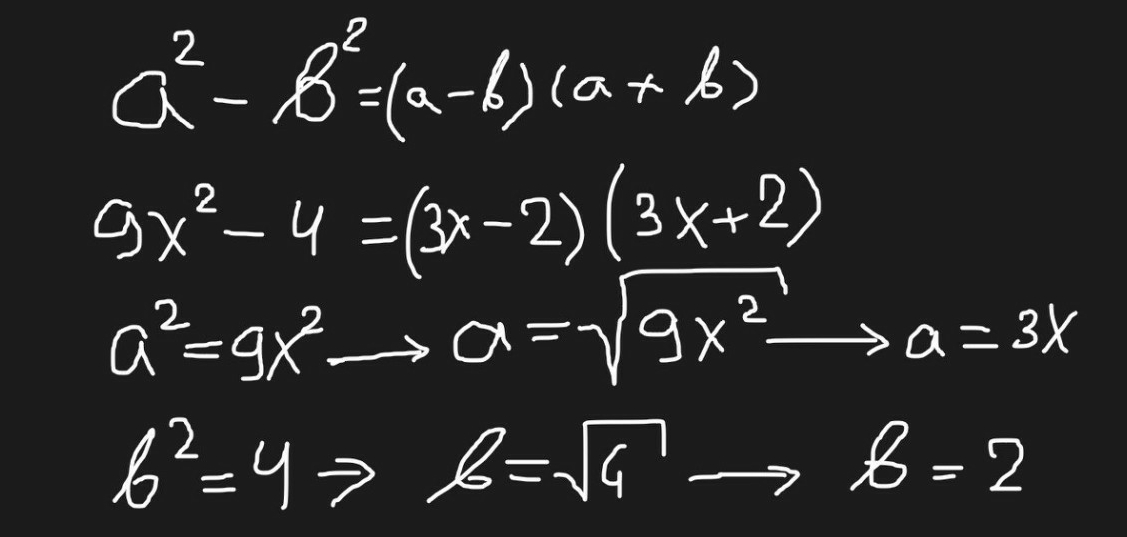 a² - b² = (a - b)(a + b)
9x² - 4 = (3x - 2)(3x + 2)
a² = 9x² → a = √9x² → a = 3x
b² = 4 ⇒ b = √4 → b = 2